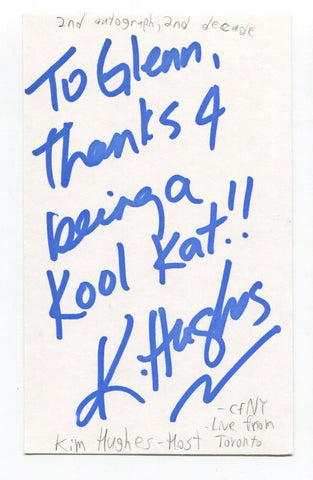 2nd autograph, 2nd decade
To Glenn,
thanks 4
being a
Kool Kat!!
K. Hughes
- CFNY
- Live from
Kim Hughes - Host Toronto